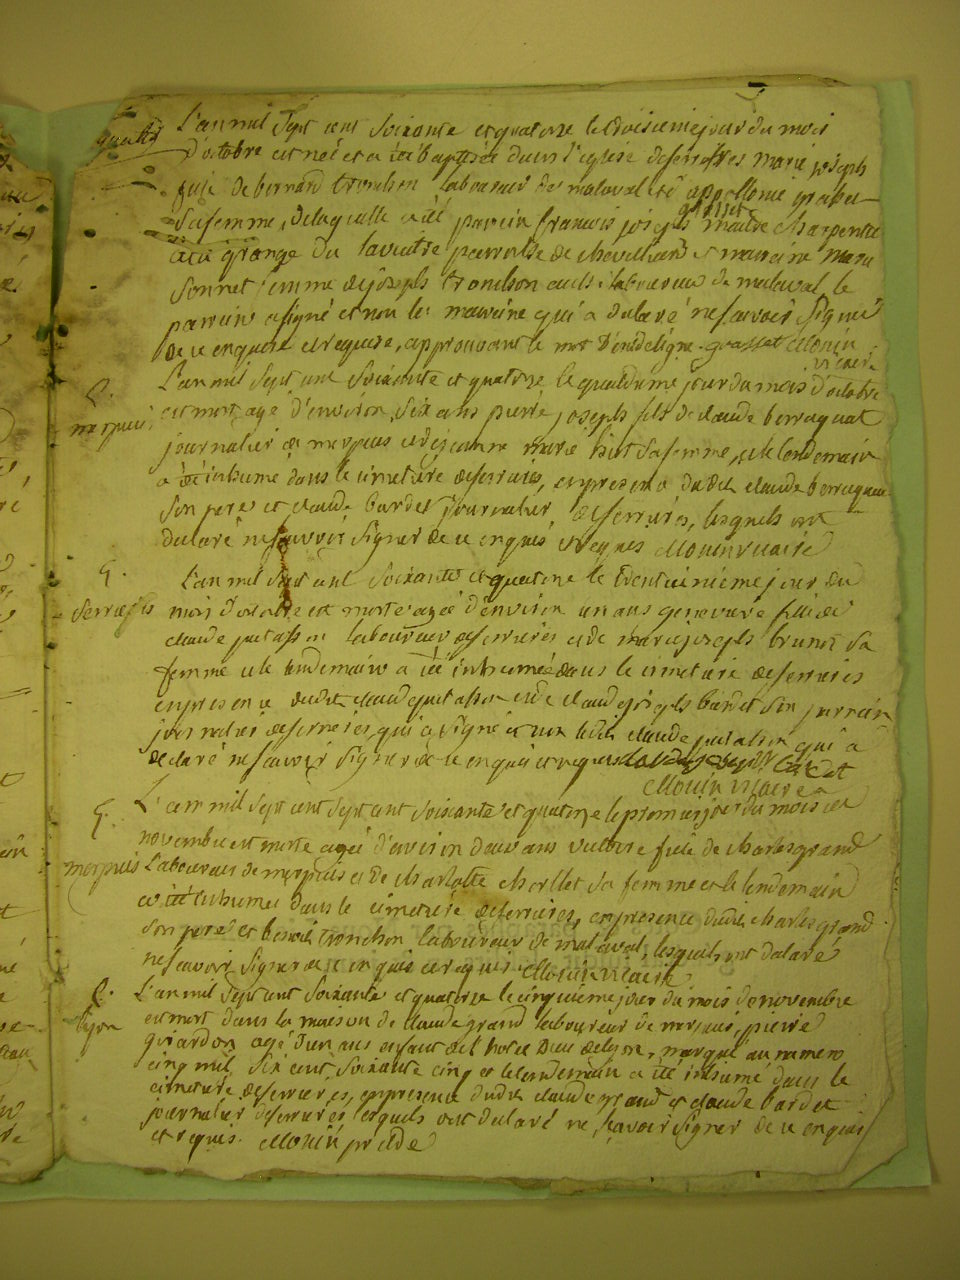 L'an mil sept cent soixante et quatorze le troisieme jour du mois
d'octobre est née et a été baptisée dans l'eglise de ferrieres marie joseph
fille de bernard tronchon laboureur de malaval et d'appollonie
sa femme, de laquelle a été parrein francois joseph grasset maitre charpentie
a la grange du parroisse de et marreine marie
femme de joseph tronchon aussi laboureur de malaval, le
parrein a signé et non la marreine qui a declaré ne savoir signer
de ce enquise et requise, approuvant le mot d'entreligne. grasset Monin
vicaire
L'an mil sept cent soixante et quatorze le jour du mois d'octobre
est mort agé d'environ six ans pierre joseph fils de claude
merpuis
journalier de merpuis et de jeanne marie sa femme, et le lendemain
a été inhumé dans le cimetiere de ferrieres, en presence dudit claude
son pere et claude bardet journalier de ferrieres, lesquels ont
declaré ne sçavoir signer de ce enquis et requis Monin vicaire
ferrieres
L'an mil sept cent soixante et quatorze le jour du
mois d'octobre est morte agée d'environ un ans genevieve fille de
claude laboureur de ferrieres et de marie joseph brunot sa
femme et le lendemain a été inhumée dans le cimetiere de ferrieres
en presence dudit claude et de claude joseph bardet son parrein
journalier de ferrieres, qui a signé et non ledit claude qui a
declaré ne sçavoir signer de ce enquis et requis claude joseph bardet
Monin vicaire
L'an mil sept cent sept cent soixante et quatorze le premier jour du mois de
novembre est morte agée d'environ deux ans fille de charles grand
merpuis
laboureur de merpuis et de charlotte sa femme et le lendemain
a été inhumée dans le cimetiere de ferrieres, en presence dudit charles grand
son pere et benoit tronchon laboureur de malaval, lesquels ont declaré
ne sçavoir signer de ce enquis et requis Monin vicaire
lyon
L'an mil sept cent soixante et quatorze le cinquieme jour du mois de novembre
est mort dans la maison de claude grand laboureur de merpuis, pierre
girardon agé d'un ans enfant de l'hotel Dieu de lyon, marqué au numero
cinq mil six cent soixante cinq et le lendemain a été inhumé dans le
cimetiere de ferrieres, en presence dudit claude grand et claude bardet
journalier de ferrieres lesquels ont declaré ne sçavoir signer de ce enquis
et requis. Monin